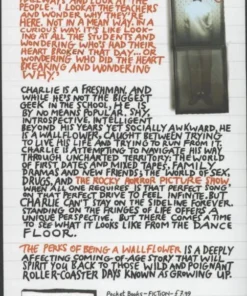 HALLWAYS AND LOOK AT THE
PEOPLE. I LOOK AT THE TEACHERS
AND WONDER WHY THEY'RE
HERE. NOT IN A MEAN WAY. IN A
CURIOUS WAY. IT'S LIKE LOOK-
ING AT ALL THE STUDENTS AND
WONDERING WHO'S HAD THEIR
HEART BROKEN THAT DAY... OR
WONDERING WHO DID THE HEART
BREAKING AND WONDERING
WHY."
CHARLIE IS A FRESHMAN. AND
WHILE HE'S NOT THE BIGGEST
GEEK IN THE SCHOOL, HE IS
BY NO MEANS POPULAR. SHY,
INTROSPECTIVE, INTELLIGENT
BEYOND HIS YEARS YET SOCIALLY AWKWARD, HE
IS A WALLFLOWER, CAUGHT BETWEEN TRYING
TO LIVE HIS LIFE AND TRYING TO RUN FROM IT.
CHARLIE IS ATTEMPTING TO NAVIGATE HIS WAY
THROUGH UNCHARTED TERRITORY: THE WORLD
OF FIRST DATES AND MIXED TAPES, FAMILY
DRAMAS AND NEW FRIENDS; THE WORLD OF SEX,
DRUGS, AND THE ROCKY HORROR PICTURE SHOW,
WHEN ALL ONE REQUIRES IS THAT PERFECT SONG
ON THAT PERFECT DRIVE TO FEEL INFINITE. BUT
CHARLIE CAN'T STAY ON THE SIDELINE FOREVER.
STANDING ON THE FRINGES OF LIFE OFFERS A
UNIQUE PERSPECTIVE. BUT THERE COMES A TIME
TO SEE WHAT IT LOOKS LIKE FROM THE DANCE
FLOOR.
THE PERKS OF BEING A WALLFLOWER IS A DEEPLY
AFFECTING COMING-OF-AGE STORY THAT WILL
SPIRIT YOU BACK TO THOSE WILD AND POIGNANT
ROLLER-COASTER DAYS KNOWN AS GROWING UP.
Pocket Books - FICTION - £7.99